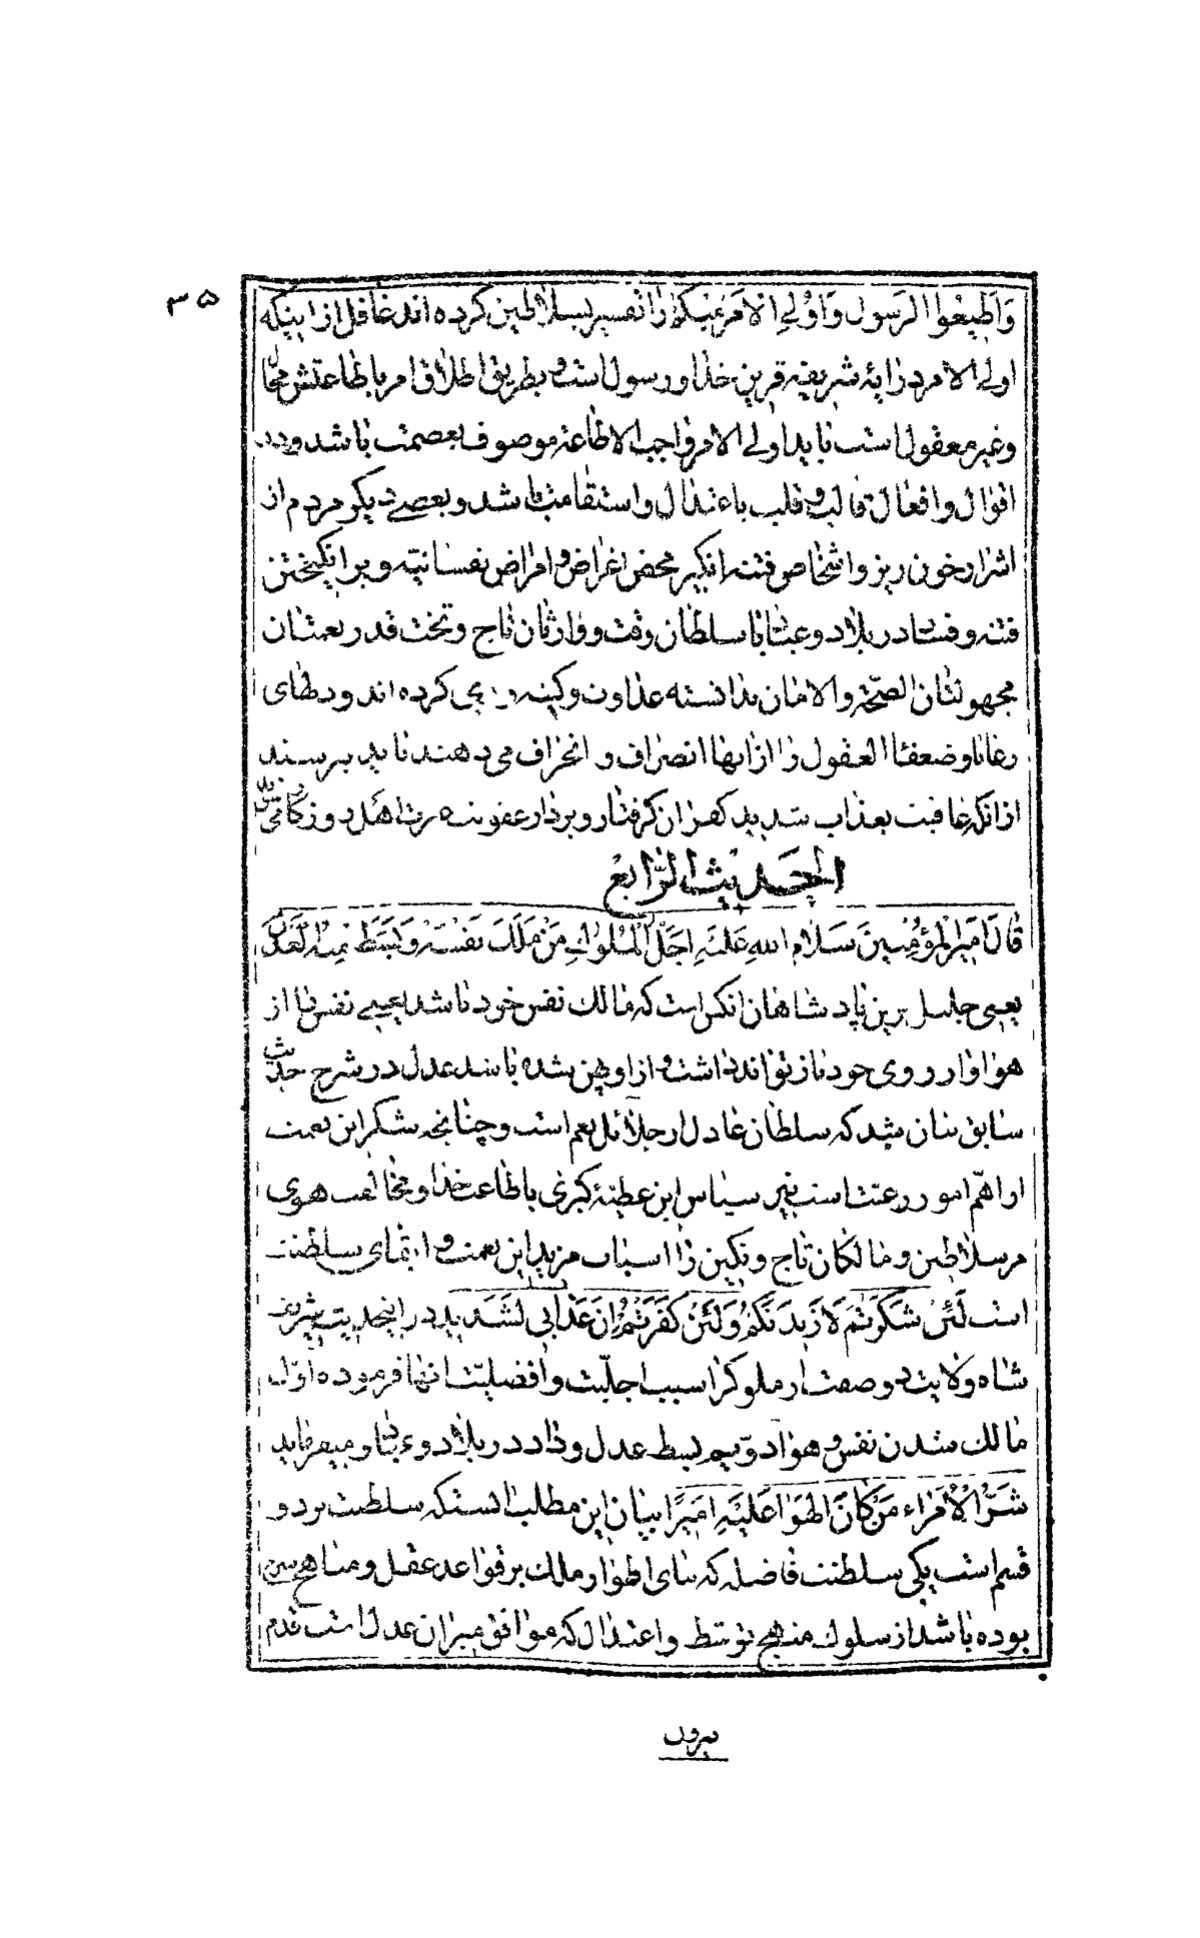 ۳۵
وَاَطیعُوا الرَسول وَاُوْلِی الاَمرِ مِنْکُمْ را تفسیر بسلاطین کرده اند غافل از اینکه
اولی الامر در ایهٔ شریفه قرین خدا و رسول است و بطریق اطلاق امر باطاعتش محال
وغیر معقول است باید اولی الامر واجب الاطاعة موصوف بعصمت باشد و در
اقوال وافعال قالب و قلب باعتدال و استقامت باشد و بعضی دیگر مردم از
اشرار خون ریز و اشخاص فتنه انگیز محض اغراض و امراض نفسانیّه و بر انگیختن
فتنه و فساد در بلاد و عباد با سلطان وقت و وارثان تاج و تخت قدر نعمتان
مجهولتان الصّحة و الامان ندانسته عداوت و کینه کرده اند و دلهای
رعایا و ضعفاء العقول را از انها انصراف و انحراف می دهند باید بترسند
از انکه عاقبت بعذاب شدید کفران گرفتار و بردار عقوبت اهل دوزگار
الحَدیث الرّابع
قالَ اَمیرُ المؤمِنینَ سَلامُ اللهِ عَلَیْهِ اَجَلُّ المُلُوكِ مَنْ مَلَكَ نَفْسَهُ وَبَسَطَ الْعَدْلَ
یعنی جلیل ترین پادشاهان انکس است که مالك نفس خود باشد یعنی نفس را از
هوا و ارزوی خود باز تواند داشت و از او پهن شده باشد عدل در شرح حدیث
سابق بیان شد که سلطان عادل از جلائل نعم است و چنانچه شکر این نعمت
از اهمّ امور رعیّت است نیز سپاس این عطیّهٔ کبری باطاعت خدا و مخالفت هوی
مر سلاطین و مالکان تاج و نگین را اسباب مزید این نعمت و ابقای سلطنت
است لَئِنْ شَکَرْتُمْ لَاَزیدَنَّکُمْ وَلَئِنْ کَفَرْتُمْ اِنَّ عَذابی لَشَدید در اینحدیث شریف
شاه ولایت دو صفت از ملوك را سبب اجلّیت و افضلیّت انها فرموده اوّل
مالك شدن نفس و هوا دوّیم بسط عدل و داد در بلاد و عباد و میفرماید
شَرُّ الْاُمَراء مَنْ کانَ الْهَوا عَلَیْهِ اَمیرًا بیان این مطلب انستکه سلطنت بر دو
قسم است یکی سلطنت فاضله که بنای اطوار ملك بر قواعد عقل و مناهج
بوده باشد از سلوك منهج توسّط و اعتدال که موافق میزان عدل است قدم
بیرون